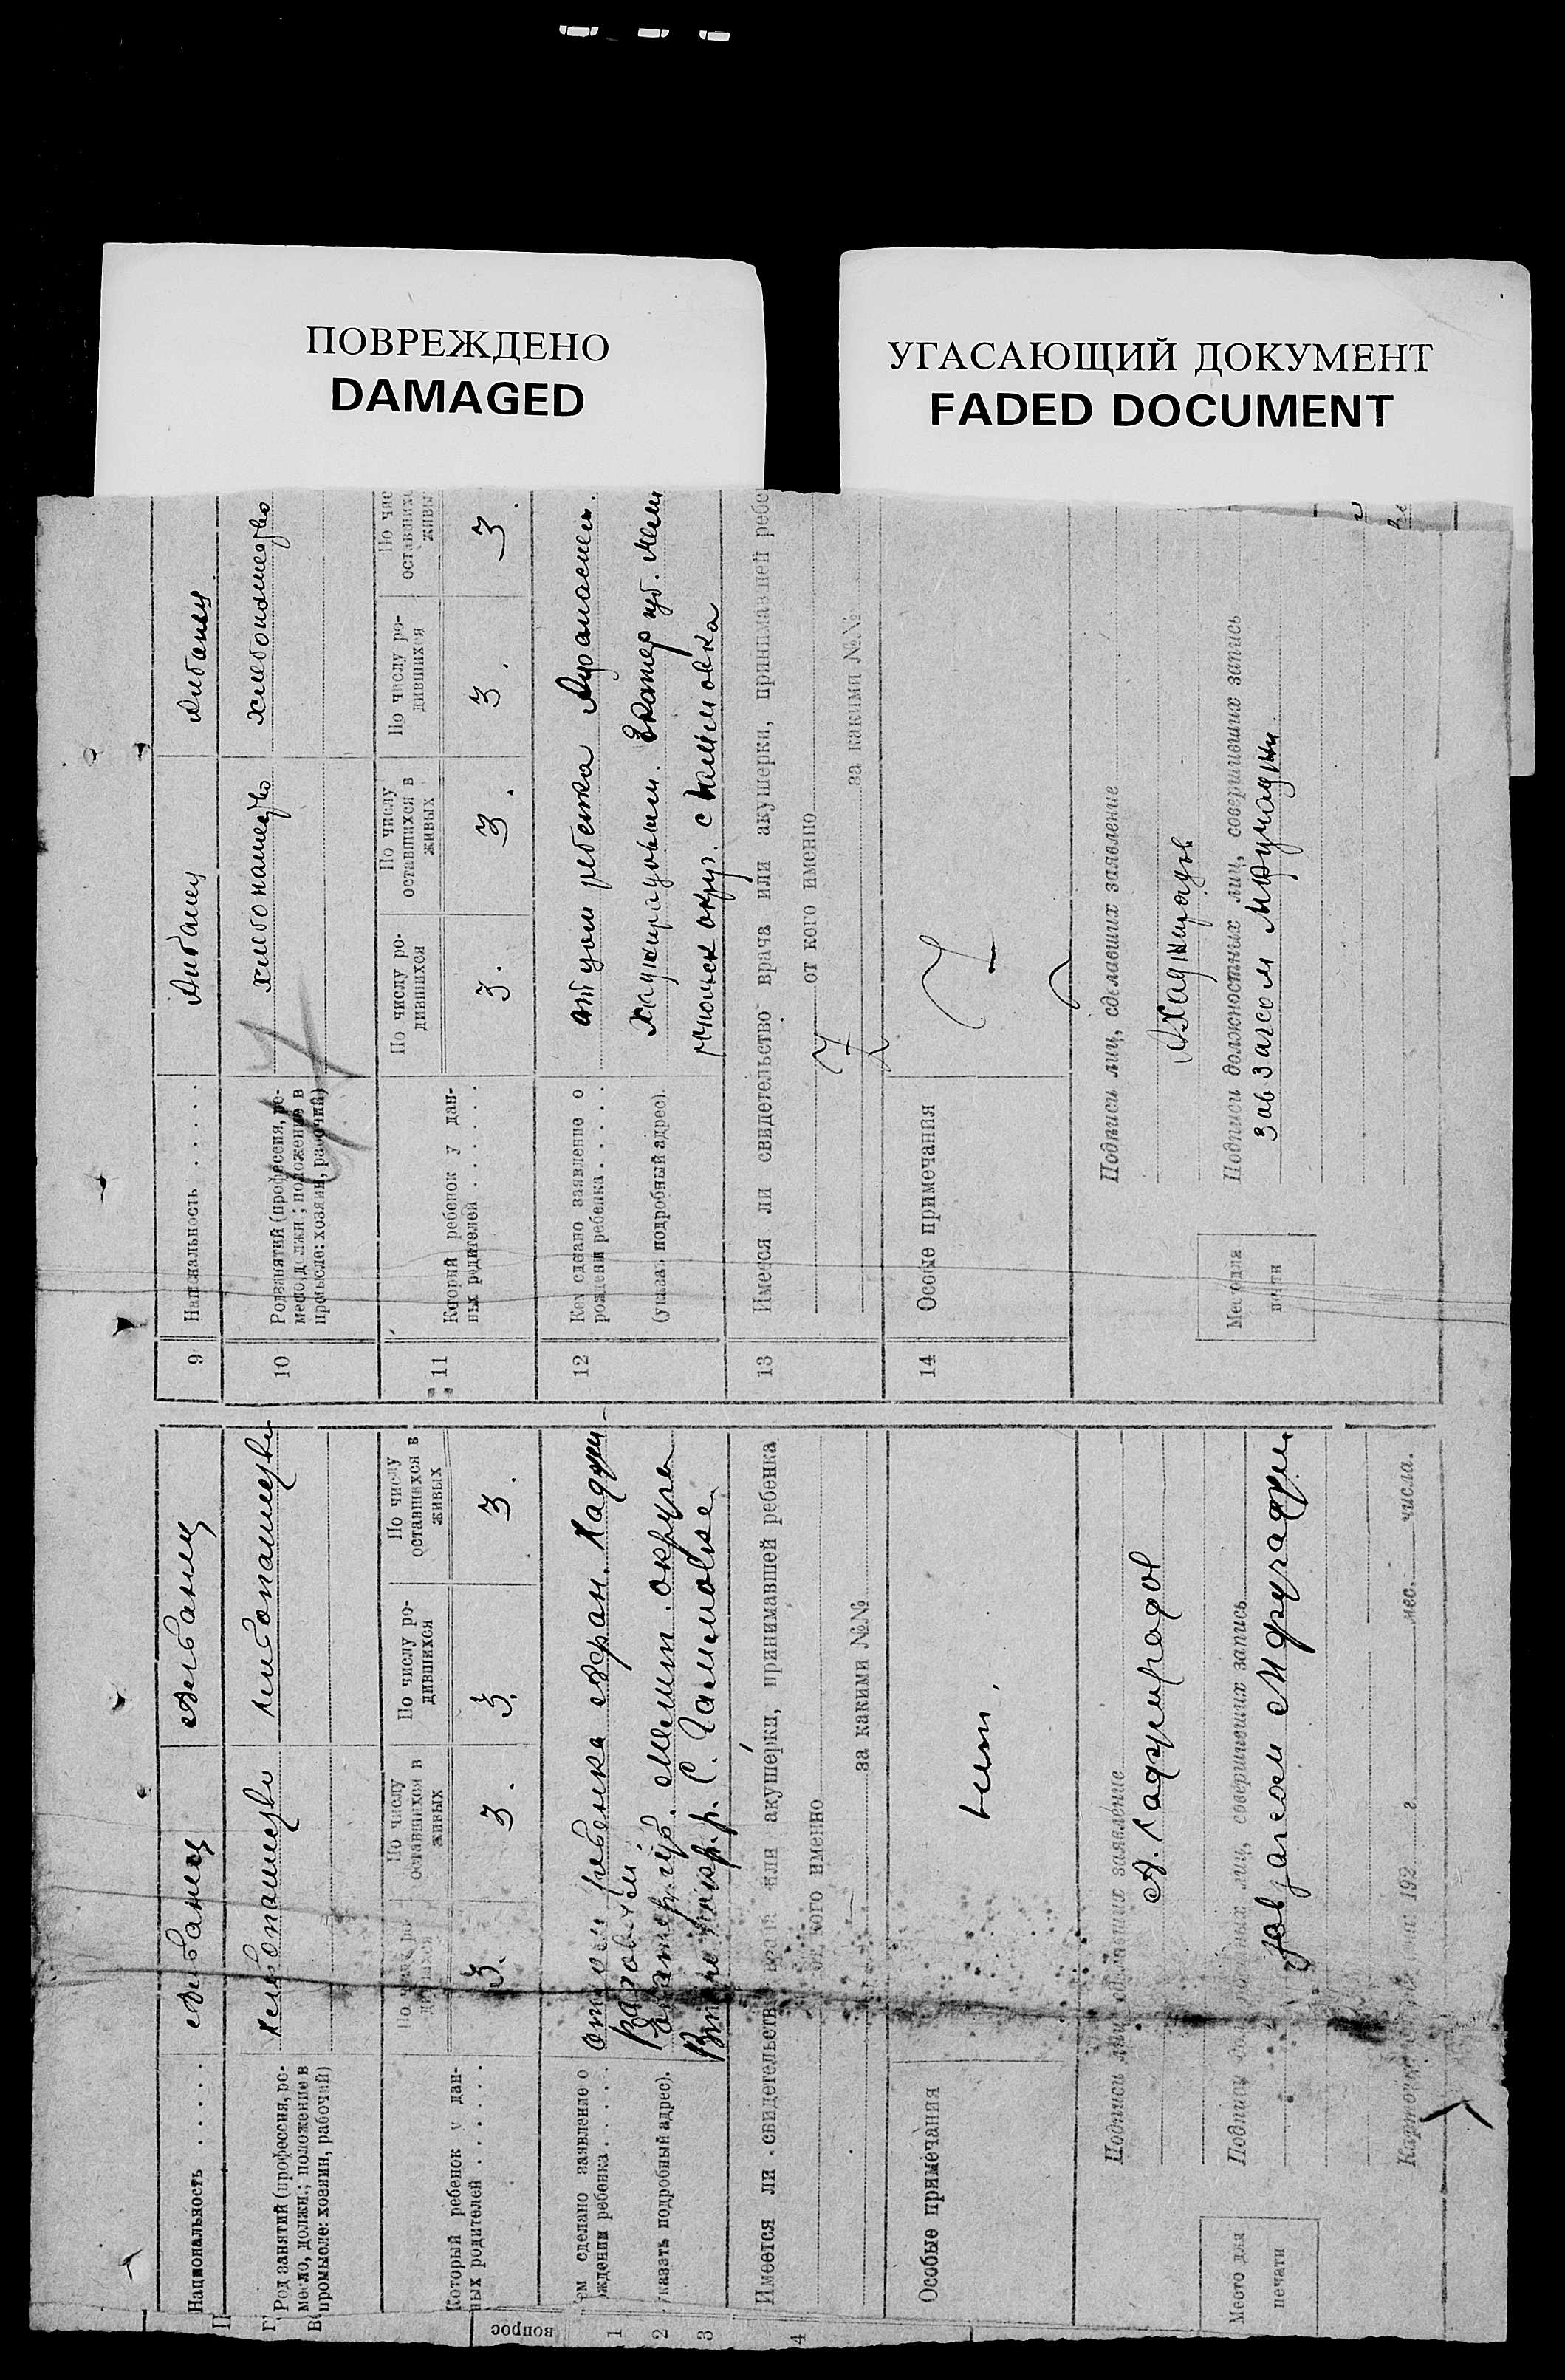 ПОВРЕЖДЕНО
DAMAGED
УГАСАЮЩИЙ ДОКУМЕНТ
FADED DOCUMENT
9 Национальность . . . . . Албанец Албанец
10 Род занятий (профессия, ре-
месло, должн.; положение в
промысле: хозяин, рабочий)
хлебопашество хлебопашество
11 Который ребенок у дан-
ных родителей . . . . . .
По числу ро-
дившихся
По числу
оставшихся в
живых
По числу ро-
дившихся
По чис
оставшихс
живы
3. 3. 3. 3.
12 Кем сделано заявление о
рождении ребенка . . . . .
(указать подробный адрес).
отцом ребенка
Хаджирадовым. Екатер губ. Мели
округ. с
13 Имеется ли свидетельство врача или акушерки, принимавшей ребе
от кого именно
за какими №№
14 Особые примечания
Подписи лиц, сделавших заявление
АХаджирадов
Подписи должностных лиц, совершивших запись
Зав Загсом МФучаджи.
Место для
печати
Национальность . . . . . Албанец Албанец
Род занятий (профессия, ре-
месло, должн.; положение в
промысле: хозяин, рабочий)
Хлебопашество
Который ребенок у дан-
ных родителей . . . . . .
По числу ро-
дившихся
По числу
оставшихся в
живых
По числу ро-
дившихся
По числу
оставшихся в
живых
3. 3. 3. 3.
ем сделано заявление о
ждении ребенка . . . . . .
указать подробный адрес).
отцом ребенка Афан. Хаджи
радовым
Екатер губ. Мелит. округа
р. С. Гамовка
Имеется ли свидетельство врача или акушерки, принимавшей ребенка
от кого именно
за какими №№
Особые примечания
нет.
Подписи лиц, сделавших заявление
А. Хаджирадов
Подписи должностных лиц, совершивших запись
Зав загсом МФучаджи
Место для
печати
192 г. мес. числа.
вопрос
1
2
3
4